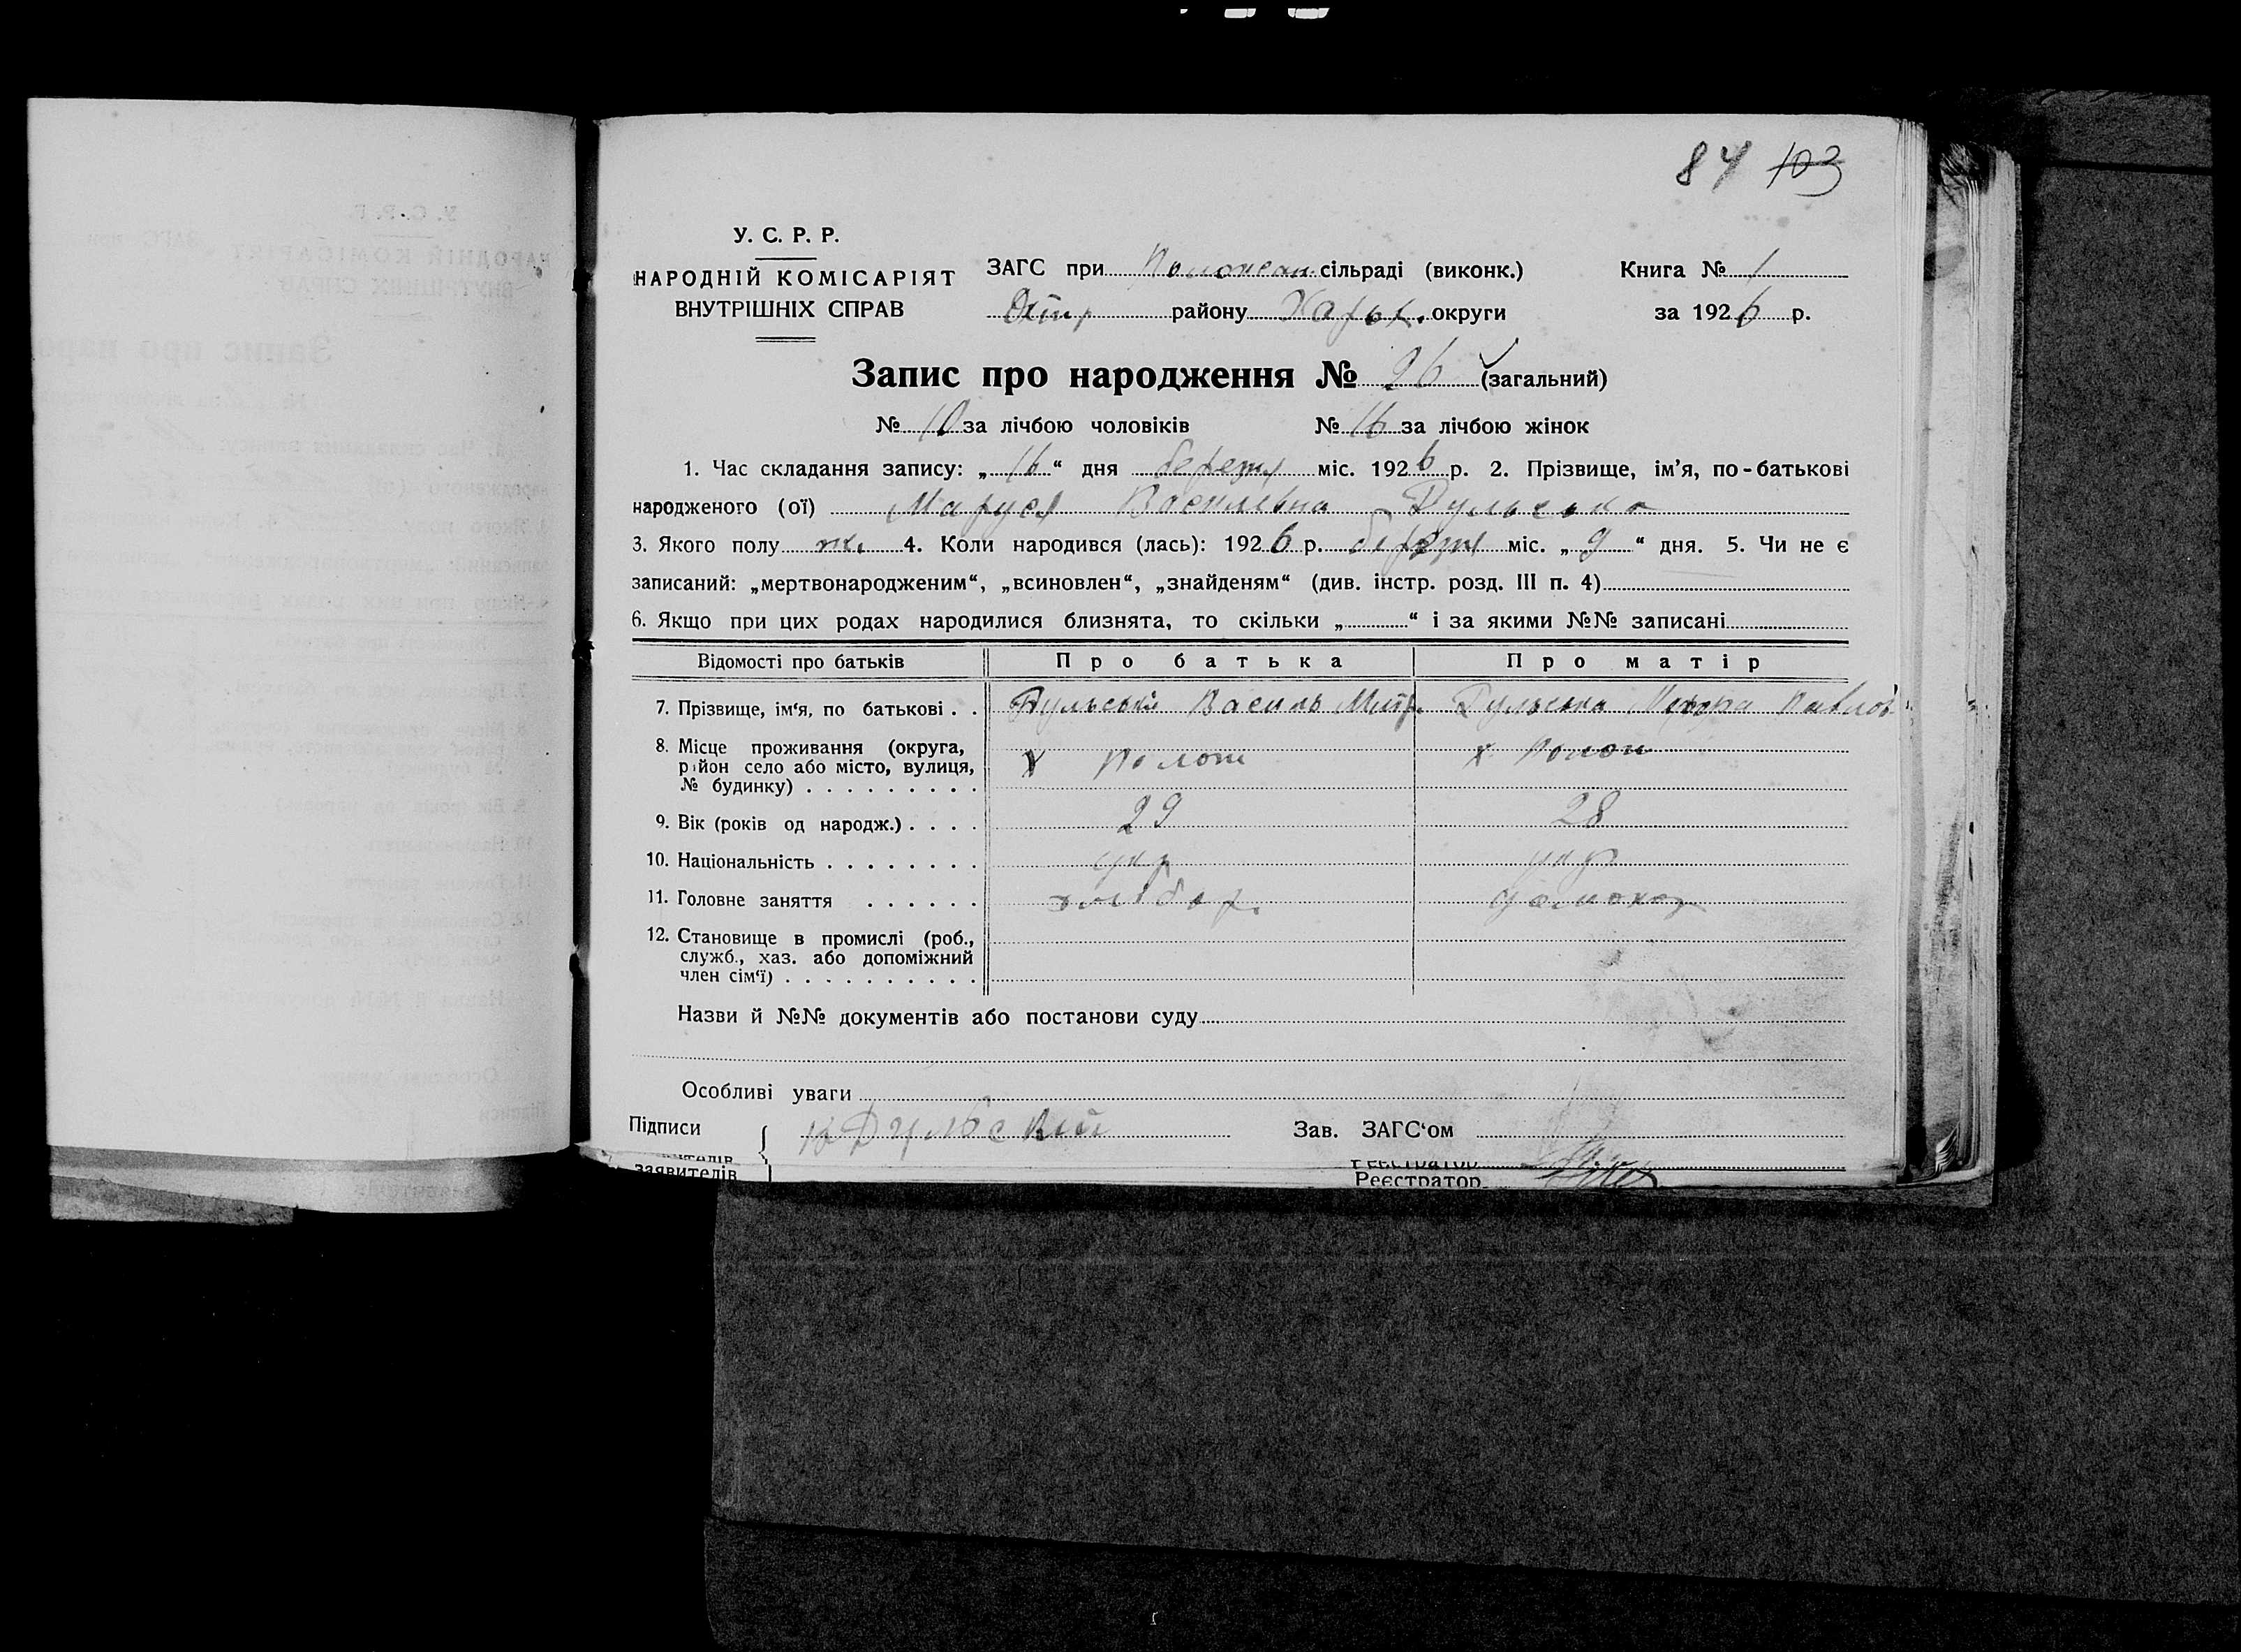 84 103
У. С. Р. Р.
НАРОДНІЙ КОМІСАРІЯТ
ВНУТРІШНІХ СПРАВ
ЗАГС при сільраді (виконк.)
Книга № 1
району Харьк. округи
за 1926 р.
Запис про народження № 26 (загальний)
№ 10 за лічбою чоловіків № 16 за лічбою жінок
1. Час складання запису: „16“ дня березня міс. 1926 р. 2. Прізвище, ім’я, по-батькові
народженого (ої) Маруся Василівна Дульська
3. Якого полу ж. 4. Коли народився (лась): 1926 р. березня міс. „9“ дня. 5. Чи не є
записаний: „мертвонародженим“, „всиновлен“, „знайденям“ (див. інстр. розд. III п. 4)
6. Якщо при цих родах народилися близнята, то скільки „ “ і за якими №№ записані
Відомості про батьків Про батька Про матір
7. Прізвище, ім‘я, по батькові . . Дульський Василь Митр. Дульська Павлов
8. Місце проживання (округа,
район село або місто, вулиця,
№ будинку) . . . . . . . . .
х х
9. Вік (років од народж.) . . . . 29 28
10. Національність . . . . . . . . укр укр
11. Головне заняття . . . . . . хлібор.
12. Становище в промислі (роб.,
служб., хаз. або допоміжний
член сім‘ї) . . . . . . . . . .
Назви й №№ документів або постанови суду
Особливі уваги
Підписи В Дульский Зав. ЗАГС‘ом
заявителів Реєстратор